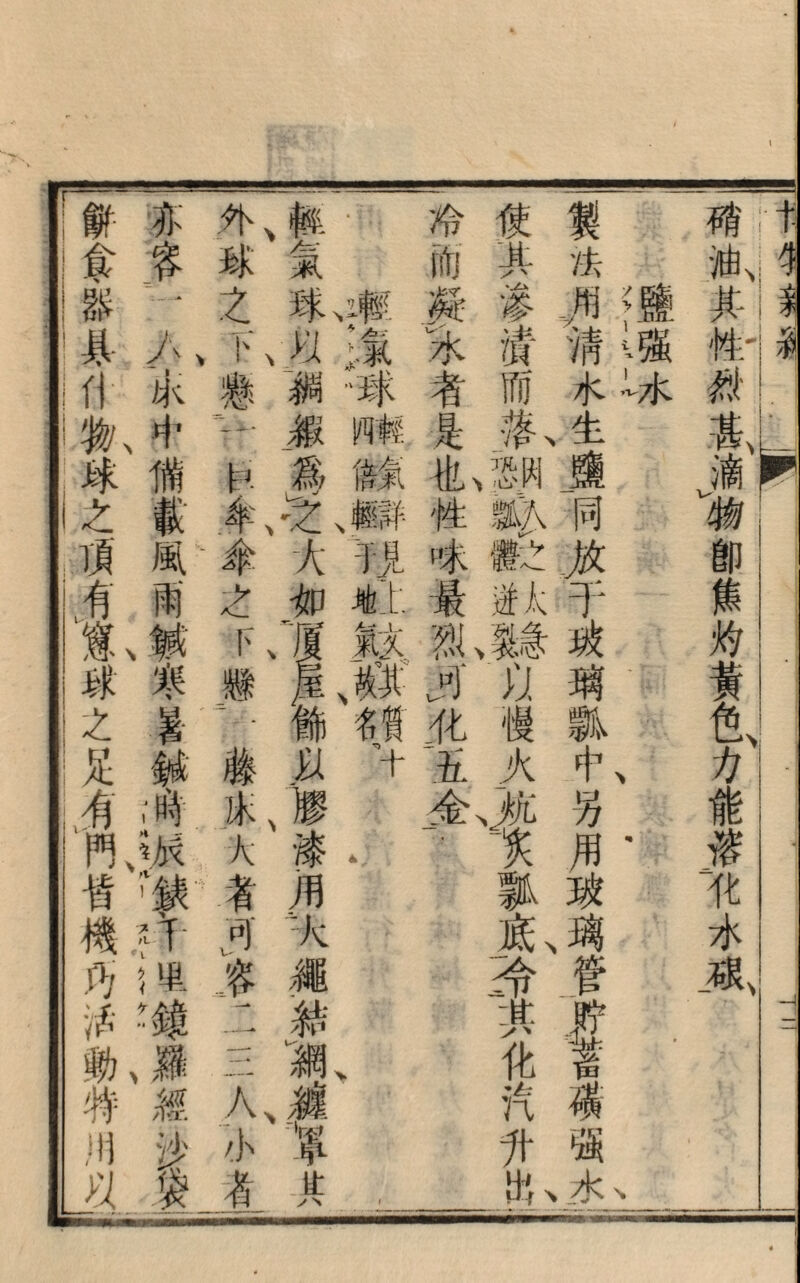 博物新編
十二
硝油、其性烈甚、滴物即焦灼黃色、力能溶化水硍、
鹽强水
製法用淸水生鹽同放于玻璃瓢中、另用玻璃管貯蓄磺强水、
使其滲漬而落、因入之太急恐瓢體迸裂以慢火炕炙瓢底、令其化汽升出、
冷而凝水者是也、性味最烈、可化五金、
輕氣球輕氣詳見上文其質十四倍輕于地氣故名
輕氣球、以綢緞爲之、大如厦屋、飾以膠漆用大繩結網、纏罩其
外、球之下、懸一巨傘、傘之下、懸一藤床、大者可容二三人、小者
亦容一人、床中備載風雨鍼寒暑鍼時辰錶千里鏡羅經沙袋
餅食器具什物、球之頂有窻、球之足有門、皆機巧活動、特用以